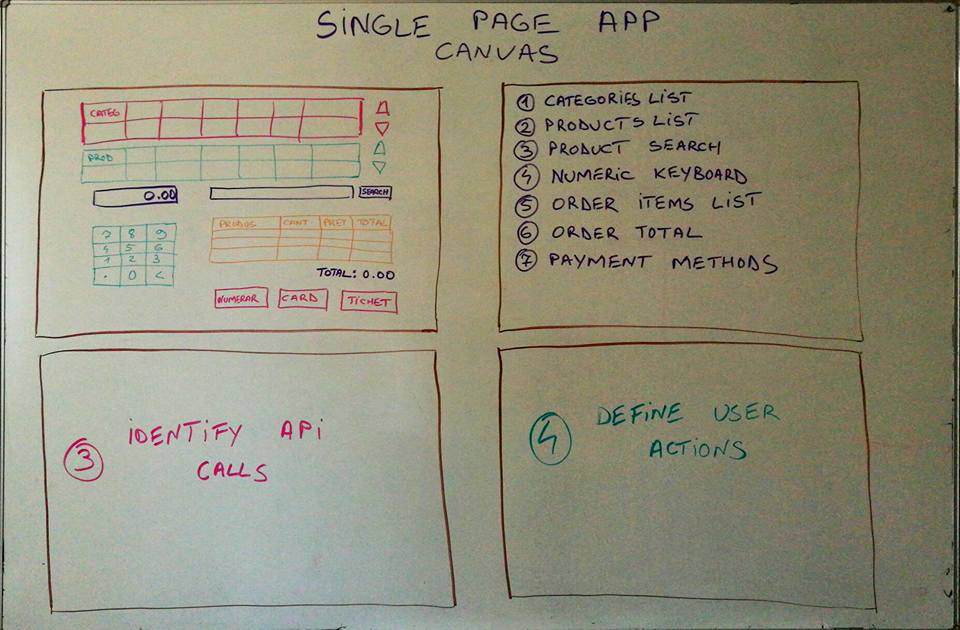 SINGLE PAGE APP
CANVAS
CATEG
PROD
0.00
SEARCH
7 8 9
4 5 6
1 2 3
. 0 <
PRODUS CANT PRET TOTAL
TOTAL: 0.00
NUMERAR CARD TICHET
1 CATEGORIES LIST
2 PRODUCTS LIST
3 PRODUCT SEARCH
4 NUMERIC KEYBOARD
5 ORDER ITEMS LIST
6 ORDER TOTAL
7 PAYMENT METHODS
3 IDENTIFY API
CALLS
4 DEFINE USER
ACTIONS